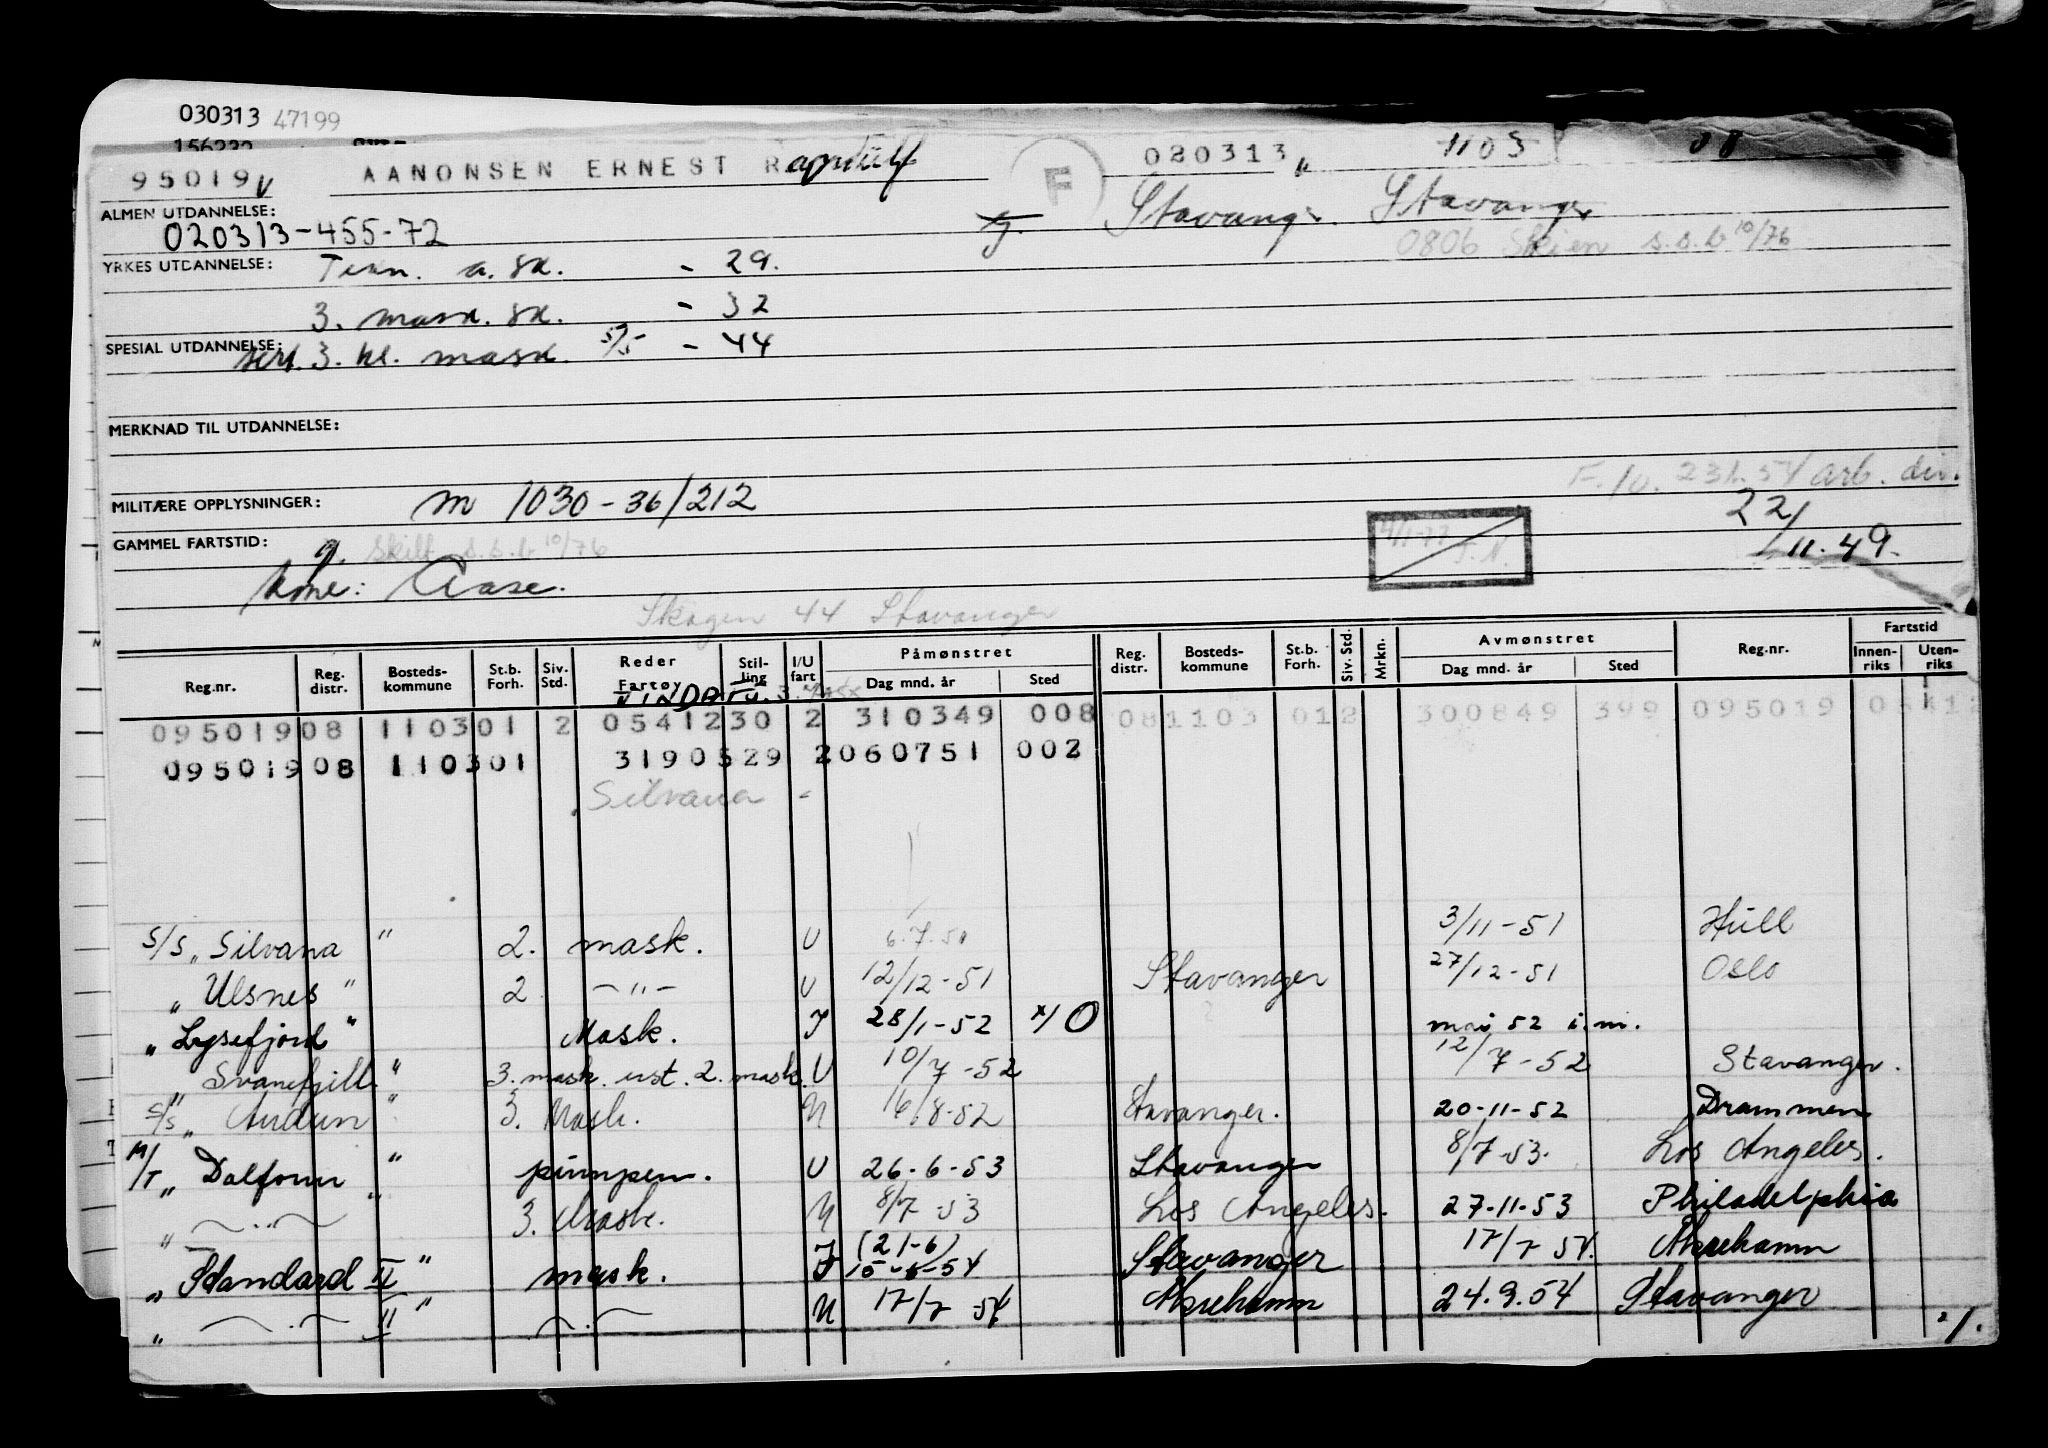 030313 47199
95019 V AANONSEN ERNEST Randulf F 020313 " 1103 08
ALMEN UTDANNELSE: g. Stavanger Stavanger
020313-455-72 0806 Skien s.s.b 10/76
YRKES UTDANNELSE: Tekn. a. sk. - 29.
3. mask. sk. - 32
SPESIAL UTDANNELSE: sert. 3. kl. mask. 5/5 - 44
MERKNAD TIL UTDANNELSE:
F. 10. arb. div.
MILITÆRE OPPLYSNINGER: m 1030-36/212 22/11.49.
GAMMEL FARTSTID: g. Skilt s.s.b 10/76
Kone: Aase.
Skagen 44 Stavanger
Reg.nr. Reg. distr. Bosteds-kommune St.b. Forh. Siv. Std. Reder Fartøy Stil-ling I/U fart Påmønstret Dag mnd. år Sted Reg. distr. Bosteds-kommune St.b. Forh. Siv. Std. Mrkn. Avmønstret Dag mnd. år Sted Reg.nr. Fartstid Innen-riks Uten-riks
095019 08 1103 01 2 0541230 2 310349 008 08 1103 01 2 300849 399 095019
095019 08 1103 01 3190529 2 060751 002
Silvana -
S/S „Silvana" 2. mask. U 6.7.51 3/11-51 Hull
„Ulsnes" 2 -"- U 12/12-51 Stavanger 27/12-51 Oslo
„Lysefjord" Mask. I 28/1-52 x/O mai 52 i.m.
„Svanefjell" 3. mask. ust. 2. mask. U 10/7-52 12/7-52 Stavanger.
S/S „Audun" 3. Mask. U 16/8-52 Stavanger. 20-11-52 Drammen
M/T „Dalfonn" pumpem. U 26-6-53 Stavanger 8/7-53. Los Angeles.
„ —"— " 3. Mask. U 8/7-53 Los Angeles. 27-11-53 Philadelphia
(21-6)
„Standard II" mask. I 15-6-54 Stavanger 17/7 54. Åkrehamn
„ —"— II" —"— U 17/7 54 Åkrehamn 24.9.54 Stavanger
·/.